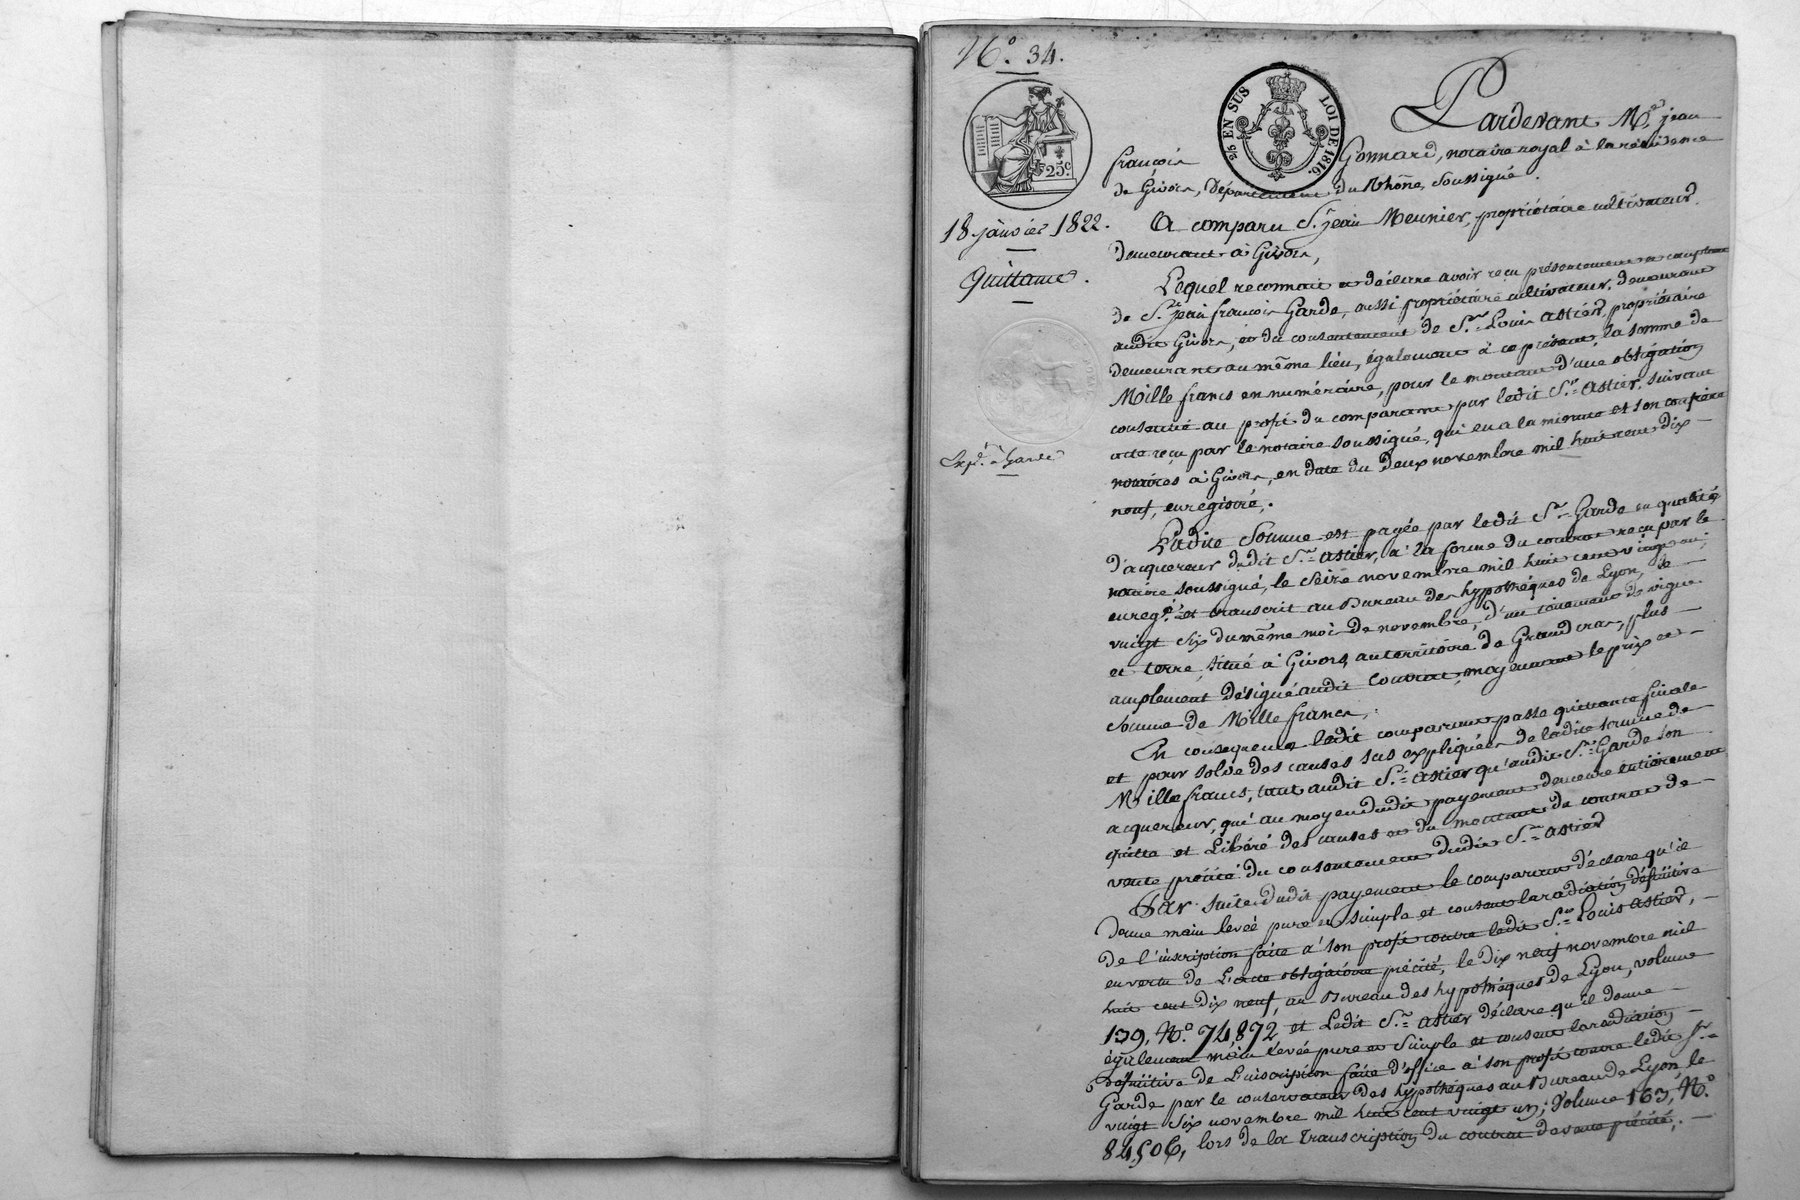 N.° 34.
25.c
2/5 EN SUS LOI DE 1816.
Pardevant M.e jean
françois Gonnard, notaire royal à la résidence
de Givors, Département du Rhône, soussigné.
18 janvier 1822.
A comparu S.r jean Meunier, propriétaire cultivateur,
demeurant à Givors,
Quittance.
Lequel reconnait et déclare avoir reçu présentement et comptant
de S.r jean françois Garde, aussi propriétaire cultivateur, demeurant
audit Givors, et du consentement de S.r Louis Astier, propriétaire
demeurant au même lieu, également à ce présent, la somme de
Mille francs en numéraire, pour le montant d'une obligation
consentie au profit du comparant par ledit S.r Astier, suivant
acte reçu par le notaire soussigné, qui en a la minute et son confrère
Exp.é à Garde
notaires à Givors, en date du deux novembre mil huit cent dix
neuf, enregistré.
Ladite Somme est payée par ledit S.r Garde en qualité
d'acquereur dudit S.r Astier, à la forme du contrat reçu par le
notaire soussigné, le seize novembre mil huit cent vingt un;
enreg.é et transcrit au Bureau des hypothéques de Lyon, le
vingt six du même mois de novembre, d'un tènement de vigne
et terre, situé à Givors, au territoire de Grand cras, plus
amplement désigné audit Contrat, moyennant le prix et
somme de Mille francs.
En consequence ledit comparant passe quittance finale
et pour solde des causes sus expliquées de ladite somme de
Mille francs, tant audit S.r Astier qu'audit S.r Garde son
acquereur, qui au moyen dudit payement demeure entièrement
quitte et Libéré des causes et du montant du contrat de
vente précité du consentement dudit S.r Astier
Par suite dudit payement le comparant déclare qu'il
donne main levée pure et simple et consent la radiation définitive
de l'inscription faite à son profit contre ledit S.r Louis Astier,
en vertu de L'acte obligatoire précité, le dix neuf novembre mil
huit cent dix neuf, au Bureau des hypothéques de Lyon, volume
139, N.° 74,872 et Ledit S.r Astier déclare qu'il donne
également main levée pure et simple et consent la radiation
définitive de L'inscription faite d'office à son profit contre ledit S.r
Garde par le conservateur des hypothéques au Bureau de Lyon, le
vingt six novembre mil huit cent vingt un, Volume 163, N.°
84,506, lors de la Transcription du contrat de vente précité,